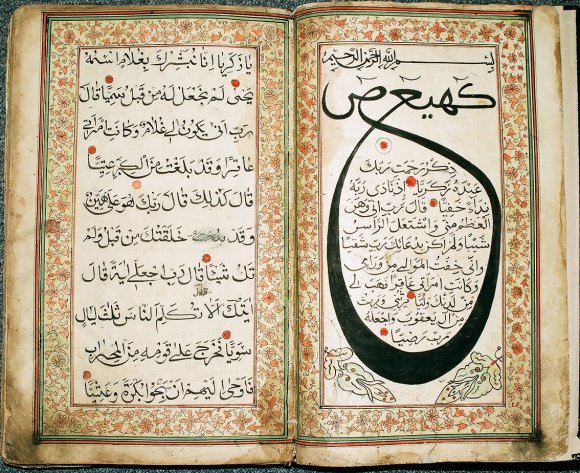 بسم الله الرحمن الرحيم
كهيعص
ذكر رحمت ربك
عبده زكريا إذ نادى ربه
نداء خفيا قال رب إني وهن
العظم مني واشتعل الرأس
شيبا ولم أكن بدعائك رب شقيا
وإني خفت الموالي من ورائي
وكانت امرأتي عاقرا فهب لي
من لدنك وليا يرثني ويرث
من آل يعقوب واجعله
رب رضيا
يا زكريا إنا نبشرك بغلام اسمه
يحيى لم نجعل له من قبل سميا قال
رب أنى يكون لي غلام وكانت امرأتي
عاقرا وقد بلغت من الكبر عتيا
قال كذلك قال ربك هو علي هين
وقد خلقتك من قبل ولم
تك شيئا قال رب اجعل لي آية قال
آيتك ألا تكلم الناس ثلث ليال
سويا فخرج على قومه من المحراب
فأوحى إليهم أن سبحوا بكرة وعشيا